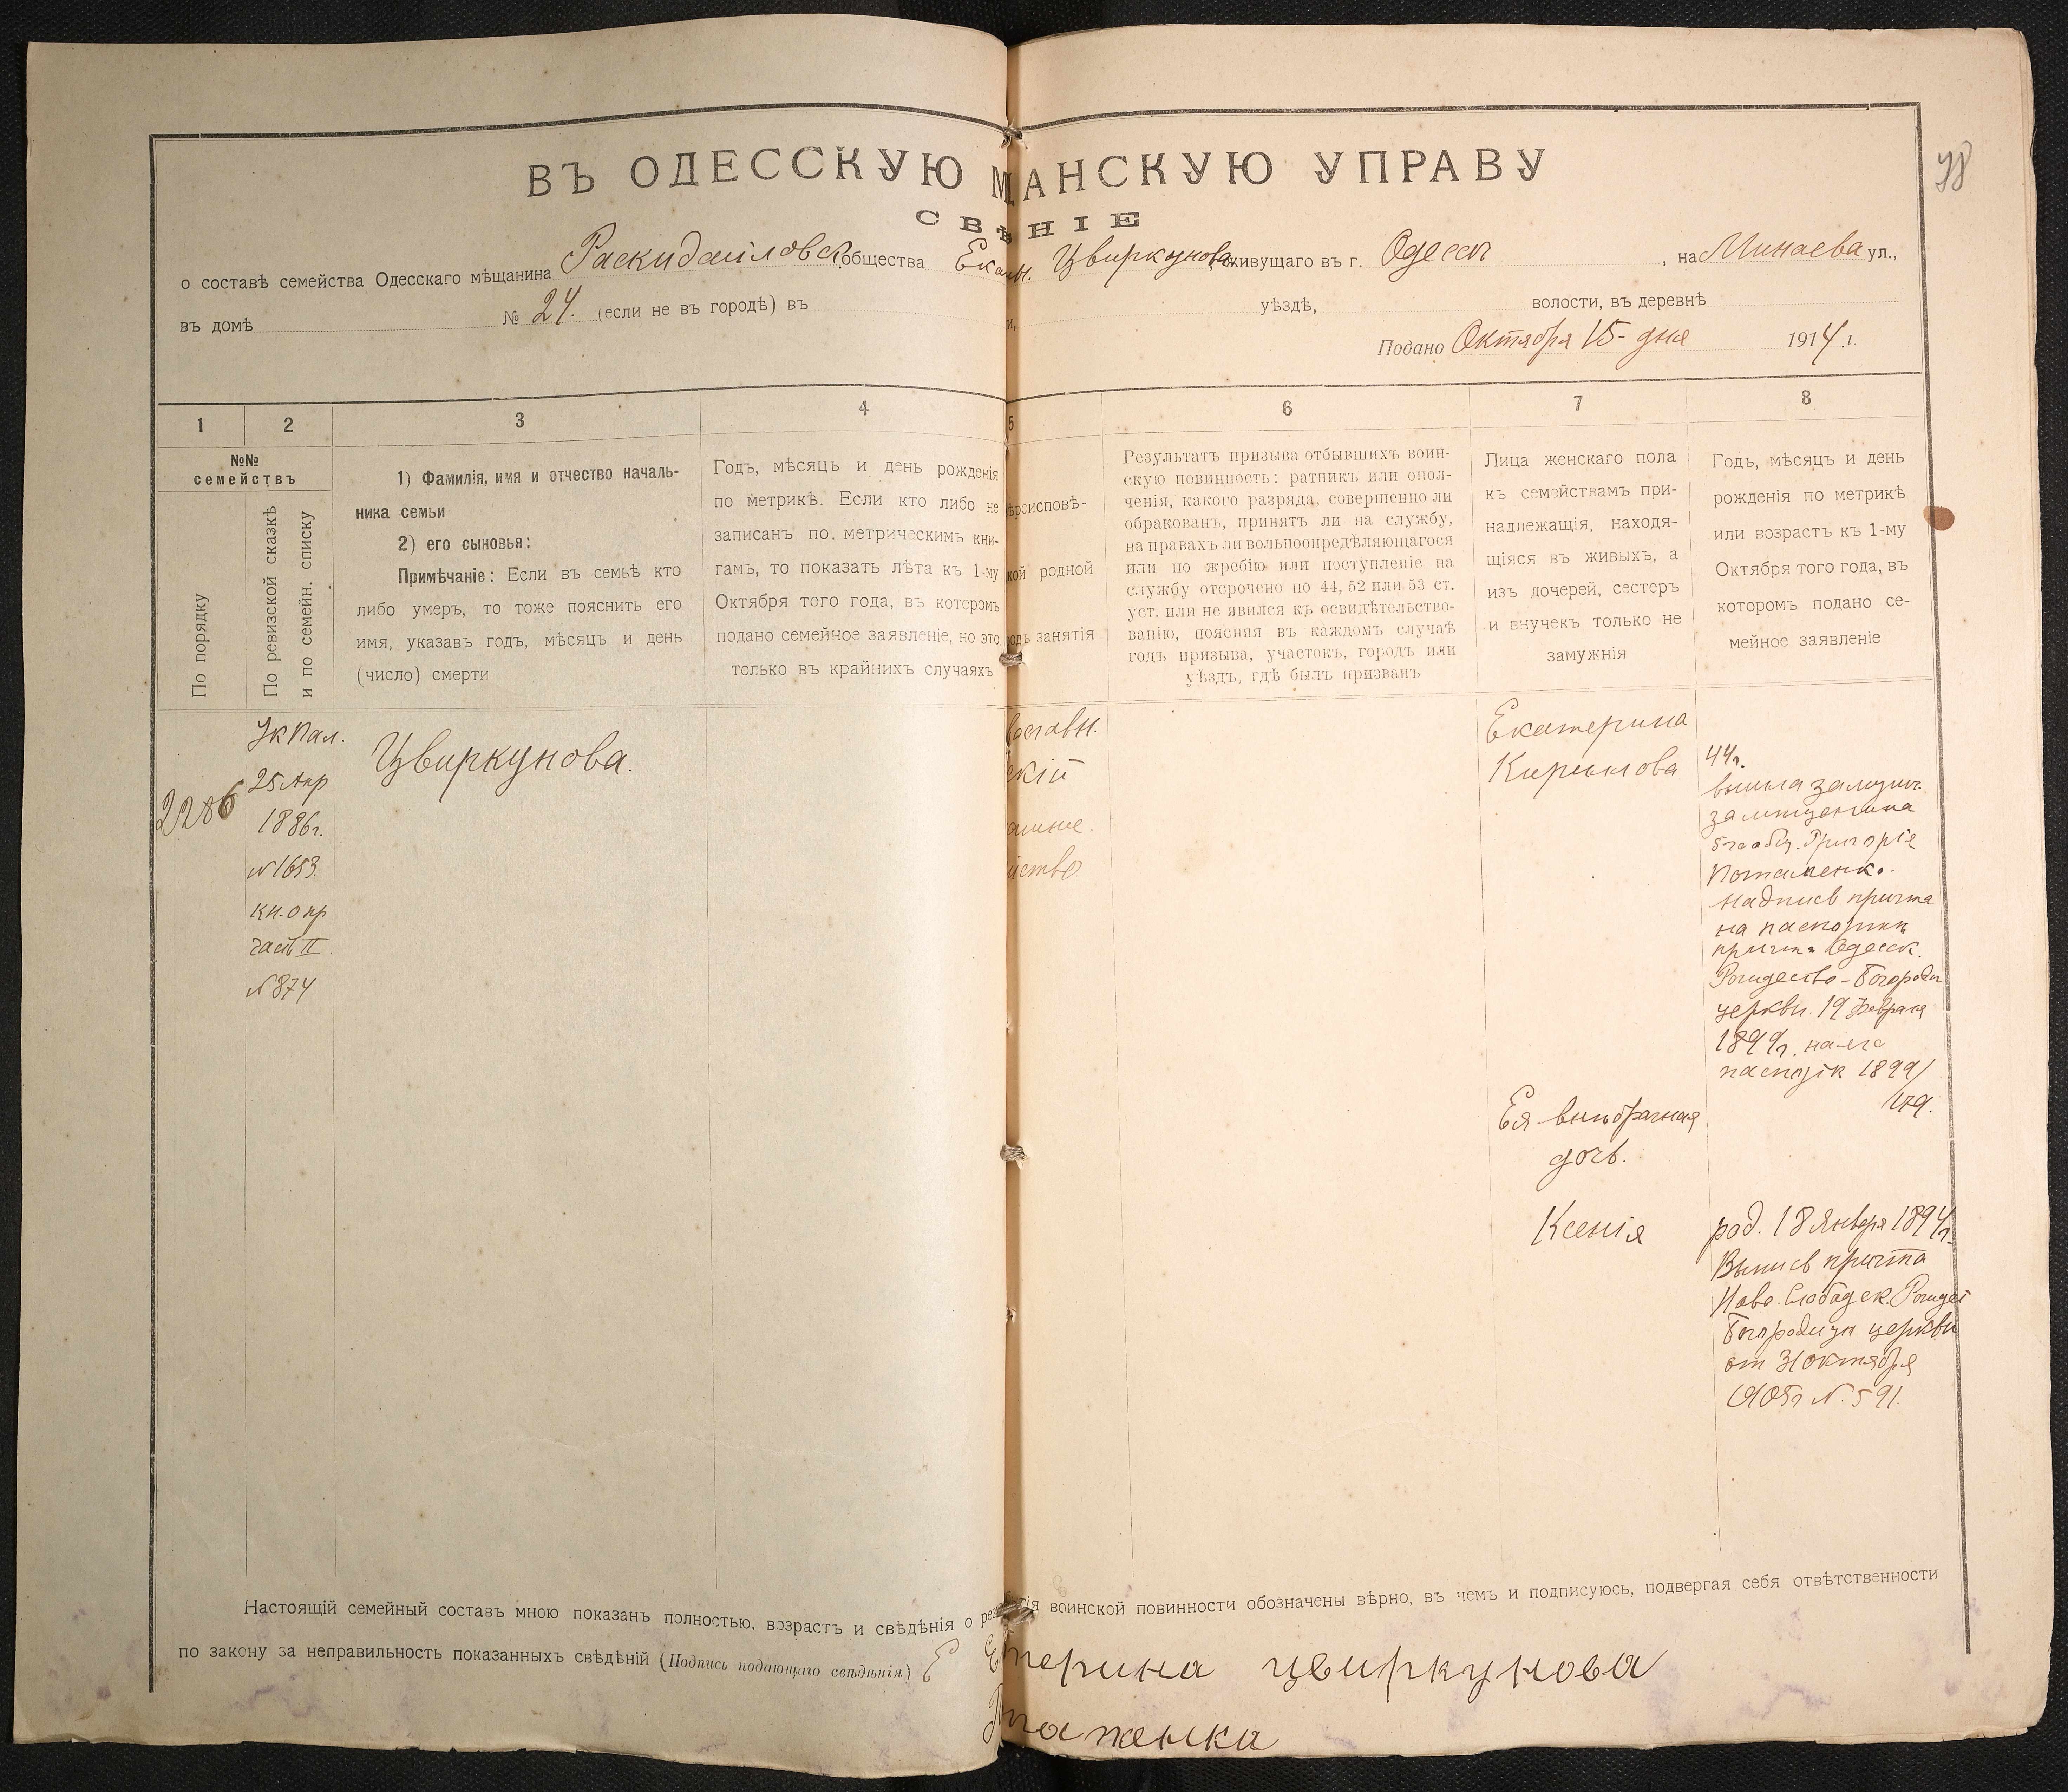 98
ВЪ ОДЕССКУЮ М ЩАНСКУЮ УПРАВУ
СВѢ НІЕ
о составѣ семейства Одесскаго мѣщанина Раскидайловск. общества Екат. Цвиркунова, живущаго въ г. Одессѣ, на Минаева ул.,
въ домѣ № 24. (если не въ городѣ) въ и, уѣздѣ, волости, въ деревнѣ
Подано Октября 15- дня 1914 г.
1 2 3 4 5 6 7 8
№№
семействъ
По порядку
По ревизской сказкѣ
и по семейн. списку
1) Фамилія, имя и отчество началь-
ника семьи
2) его сыновья:
Примѣчаніе: Если въ семьѣ кто
либо умеръ, то тоже пояснить его
имя, указавъ годъ, мѣсяцъ и день
(число) смерти
Годъ, мѣсяцъ и день рожденія
по метрикѣ. Если кто либо не
записанъ по метрическимъ кни-
гамъ, то показать лѣта къ 1-му
Октября того года, въ которомъ
подано семейное заявленіе, но это
только въ крайнихъ случаяхъ
ѣроисповѣ-
кой родной
одъ занятія
Результатъ призыва отбывшихъ воин-
скую повинность: ратникъ или опол-
ченія, какого разряда, совершенно ли
обракованъ, принятъ ли на службу,
на правахъ ли вольноопредѣляющагося
или по жребію или поступленіе на
службу отсрочено по 44, 52 или 53 ст.
уст. или не явился къ освидѣтельство-
ванію, поясняя въ каждомъ случаѣ
годъ призыва, участокъ, городъ или
уѣздъ, гдѣ былъ призванъ
Лица женскаго пола
къ семействамъ при-
надлежащія, находя-
щіяся въ живыхъ, а
изъ дочерей, сестеръ
и внучекъ только не
замужнія
Годъ, мѣсяцъ и день
рожденія по метрикѣ
или возрастъ къ 1-му
Октября того года, въ
которомъ подано се-
мейное заявленіе
2286
Ук Пал.
25 Апр
1886 г.
№ 1653
кн. окр
часть II
№ 874
Цвиркунова.
вославн.
скій
йство.
Екатерина
Кирилова
44 г.
вышла замуж.
за мѣщанина
Григорія
Потапенко.
Надпись причта
на паспортѣ
причта Одесск.
Рождество-Богороди
церкви. 19 Февраля
1899 г. на его
паспортѣ 1899/
179.
Ея внѣбрачная
дочь.
Ксенія
род. 18 Января 1894 г.
Выпись причта
Ново-Слободск. Рождес
Богородицк церкви
от 31 октября
1905 г № 591.
Настоящій семейный составъ мною показанъ полностью, возрастъ и свѣдѣнія о рез ія воинской повинности обозначены вѣрно, въ чемъ и подписуюсь, подвергая себя отвѣтственности
по закону за неправильность показанныхъ свѣдѣній (Подпись подающаго свѣдѣнія) Е Е терина цвиркунова
П тапенка